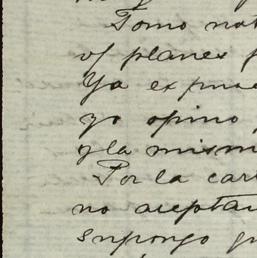 Tomo not
vf planes p
Ya expuse
yo opino
y la mism
Por la car
no aceptar
supongo qu